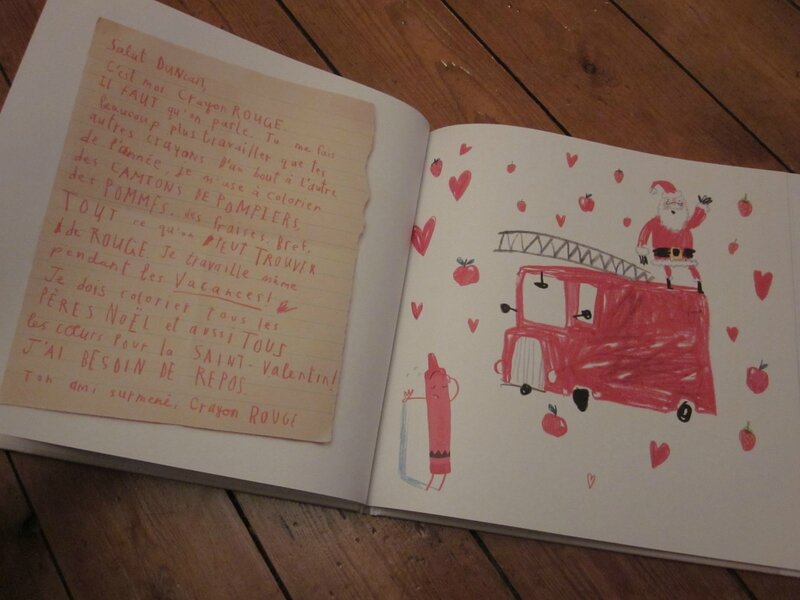 Salut DUNCAN,
C'est moi Crayon ROUGE.
Il FAUT qu'on parle. Tu me fais
beaucoup plus travailler que tes
autres crayons. D'un bout à l'autre
de l'année, je m'use à colorier
des CAMIONS DE POMPIERS,
des POMMES, des fraises. Bref,
TOUT ce qu'on PEUT TROUVER
de ROUGE. Je travaille même
pendant les Vacances!
Je dois colorier tous les
PÈRES NOËL et aussi TOUS
les cœurs pour la SAINT-Valentin!
J'AI BESOIN DE REPOS.
Ton ami surmené, Crayon ROUGE